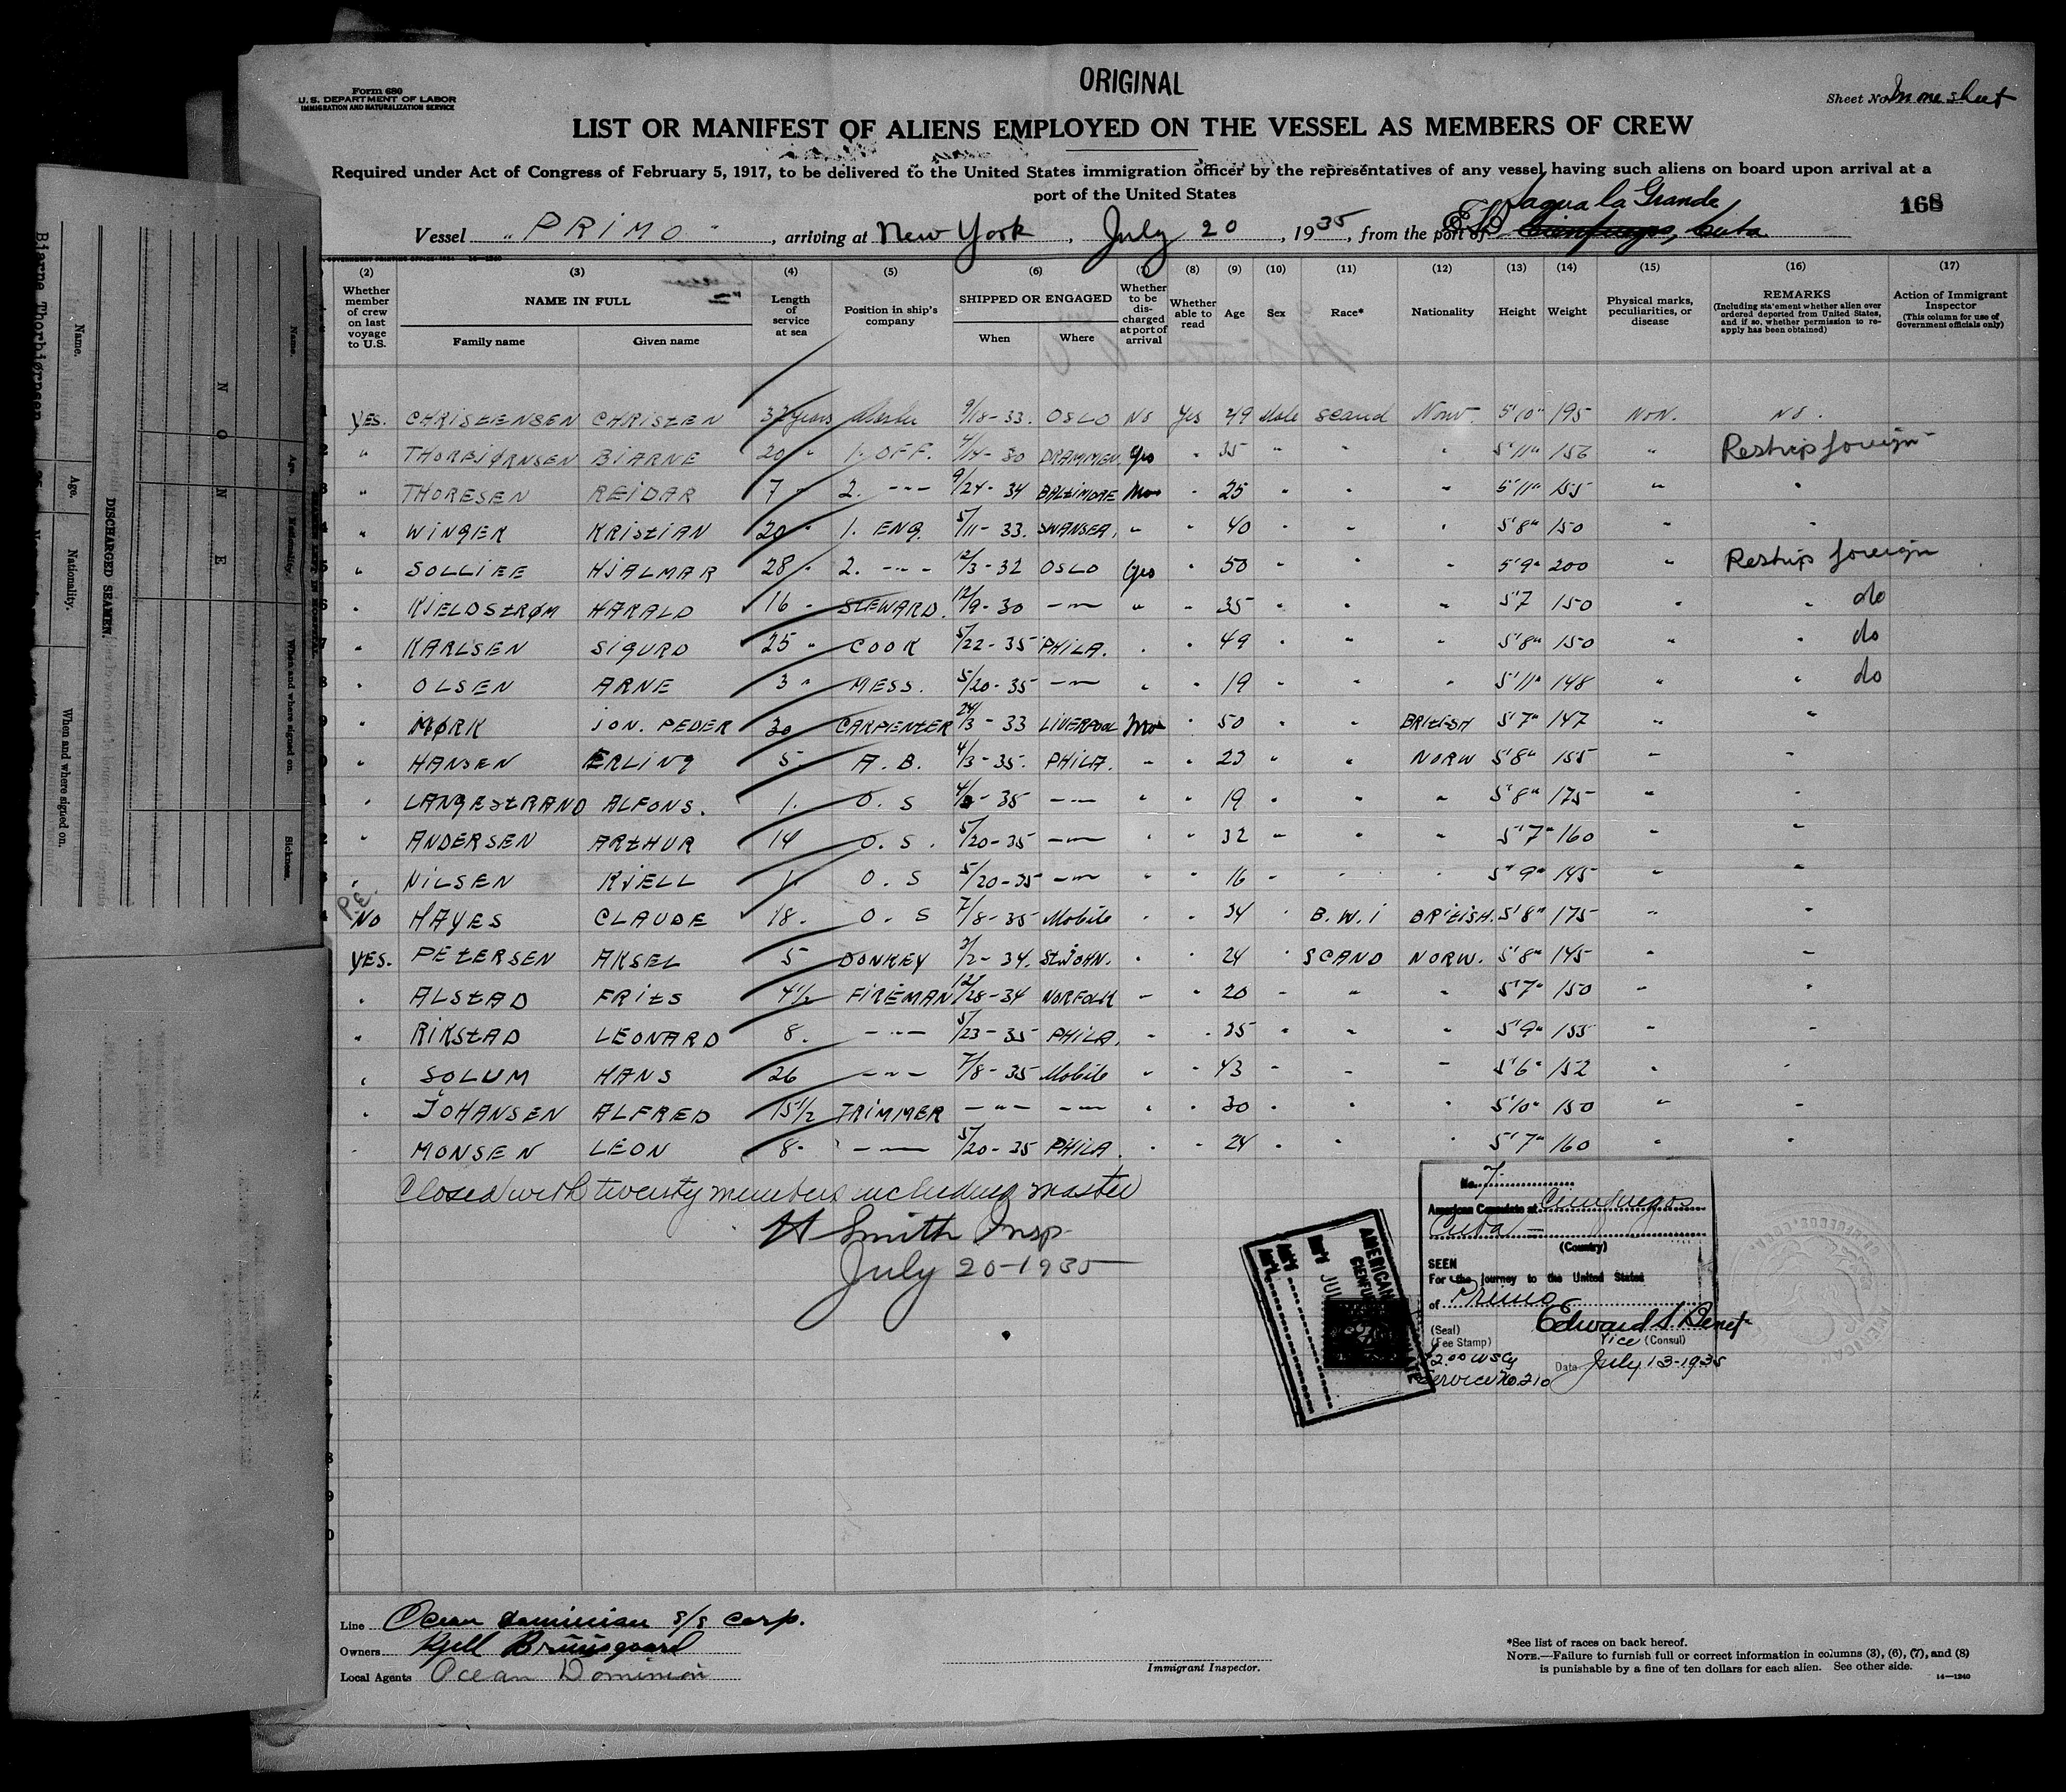 ORIGINAL
Form 680
U.S. DEPARTMENT OF LABOR
IMMIGRATION AND NATURALIZATION SERVICE
Sheet No. In one sheet
LIST OR MANIFEST OF ALIENS EMPLOYED ON THE VESSEL AS MEMBERS OF CREW
Required under Act of Congress of February 5, 1917, to be delivered to the United States immigration officer by the representatives of any vessel having such aliens on board upon arrival at a
port of the United States
168
Sagua la Grande
Vessel "PRIMO", arriving at New York, July 20, 1935, from the port of Cienfuegos, Cuba
(2) (3) (4) (5) (6) (7) (8) (9) (10) (11) (12) (13) (14) (15) (16) (17)
Whether member of crew on last voyage to U.S.
NAME IN FULL
Family name
Given name
Length of service at sea
Position in ship's company
SHIPPED OR ENGAGED
When
Where
Whether to be discharged at port of arrival
Whether able to read
Age
Sex
Race*
Nationality
Height
Weight
Physical marks, peculiarities, or disease
REMARKS
(Including statement whether alien ever ordered deported from United States, and if so, whether permission to reapply has been obtained)
Action of Immigrant Inspector
(This column for use of Government officials only)
YES. CHRISTENSEN CHRISTEN 32 years Master 9/18-33. OSLO No Yes 49 Male Scand Norw. 5'10" 195 NON. NO.
" THORBJØRNSEN BJARNE 20 " 1. OFF. 4/14-30 DRAMMEN. Yes " 35 " " " 5'11" 156 " Reship foreign
" THORESEN REIDAR 7 " 2. --- 9/24-34 BALTIMORE No " 25 " " " 5'11" 155 " "
" WINGER KRISTIAN 20 " 1. ENG. 5/11-33. SWANSEA. " " 40 " " " 5'8" 150 " "
" SOLLIEE HJALMAR 28 " 2. --- 12/3-32 OSLO Yes " 50 " " " 5'9" 200 " Reship foreign
" KJELDSTRØM HARALD 16 " STEWARD. 12/9-30 -"- " " 35 " " " 5'7 150 " " do
" KARLSEN SIGURD 25 " COOK 5/22-35 PHILA. " " 49 " " " 5'8" 150 " do
" OLSEN ARNE 3 " MESS. 5/20-35 -"- " " 19 " " " 5'11" 148 " " do
" MØRK JON. PEDER 30 CARPENTER 24/3-33 LIVERPOOL No " 50 " " BRITISH 5'7" 147 " "
" HANSEN ERLING 5 A. B. 4/3-35. PHILA. " " 23 " " NORW 5'8" 155 " "
" LANGESTRAND ALFONS. 1. O. S 4/3-35 -"- " " 19 " " " 5'8" 175 " "
" ANDERSEN ARTHUR 14 O. S. 5/20-35 -"- " " 32 " " " 5'7" 160 " "
" NILSEN KJELL 1. O. S 5/20-35 -"- " " 16 " " " 5'9" 145 " "
NO HAYES CLAUDE 18. O. S 7/8-35 Mobile " " 34 " B. W. I BRITISH. 5'8" 175 " "
YES. PETERSEN AKSEL 5 DONKEY 2/2-34. St. JOHN. " " 24 " SCAND NORW. 5'8" 145 " "
" ALSTAD FRITS 4 1/2 FIREMAN 12/28-34 NORFOLK " " 20 " " " 5'7" 150 " "
" RIKSTAD LEONARD 8. -"- 5/23-35 PHILA. " " 35 " " " 5'9" 155 " "
" SOLUM HANS 26 -"- 7/8-35 Mobile " " 43 " " " 5'6" 152 " "
" JOHANSEN ALFRED 15 1/2 TRIMMER -"- -"- " " 30 " " " 5'10" 150 " "
" MONSEN LEON 8. -"- 5/20-35 PHILA. " " 24 " " " 5'7" 160 " "
Closed with twenty members including master
H Smith Insp
July 20-1935
No. 7.
American Consulate at Cienfuegos
Cuba
(Country)
SEEN
For the journey to the United States
of Primo
(Seal)
(Fee Stamp)
Vice (Consul)
$2.00 USCy
Service No 210
Date July 13-1935
Line Ocean dominion s/s corp.
Owners Kjell Bruusgaard
Local Agents Ocean Dominion
Immigrant Inspector.
*See list of races on back hereof.
NOTE.—Failure to furnish full or correct information in columns (3), (6), (7), and (8)
is punishable by a fine of ten dollars for each alien. See other side.
14—1240
Bjarne Thorbjørnsen
Name.
Age.
Nationality.
When and where signed on.
DISCHARGED SEAMEN.
NONE
Name.
Age.
Nationality.
When and where signed on.
Sickness.